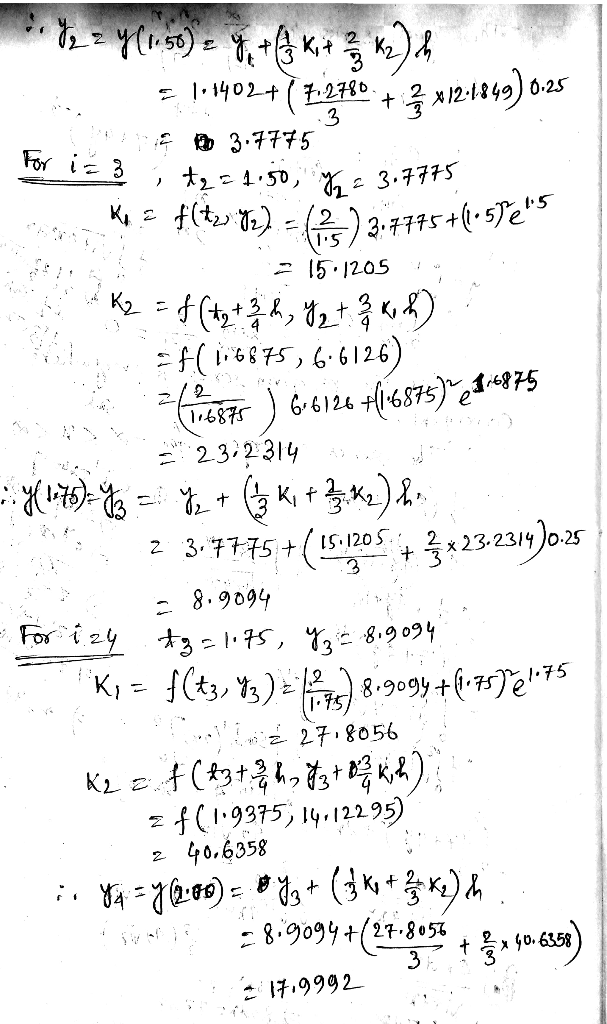 ∴ y₂ = y(1.50) = y₁ + (1/3 K₁ + 2/3 K₂) h
= 1.1402 + (7.2780/3 + 2/3 × 12.1849) 0.25
= 3.7775
For i = 3 , t₂ = 1.50, y₂ = 3.7775
K₁ = f(t₂, y₂) = (2/1.5) 3.7775 + (1.5)² e^1.5
= 15.1205
K₂ = f(t₂ + 3/4 h, y₂ + 3/4 K₁ h)
= f(1.6875, 6.6126)
= (2/1.6875) 6.6126 + (1.6875)² e^1.6875
= 23.2314
∴ y(1.75) = y₃ = y₂ + (1/3 K₁ + 2/3 K₂) h.
= 3.7775 + (15.1205/3 + 2/3 × 23.2314) 0.25
= 8.9094
For i = 4 t₃ = 1.75, y₃ = 8.9094
K₁ = f(t₃, y₃) = (2/1.75) 8.9094 + (1.75)² e^1.75
= 27.8056
K₂ = f(t₃ + 3/4 h, y₃ + 3/4 K₁ h)
= f(1.9375, 14.12295)
= 40.6358
∴ y₄ = y(2.00) = y₃ + (1/3 K₁ + 2/3 K₂) h
= 8.9094 + (27.8056/3 + 2/3 × 40.6358)
= 17.9992